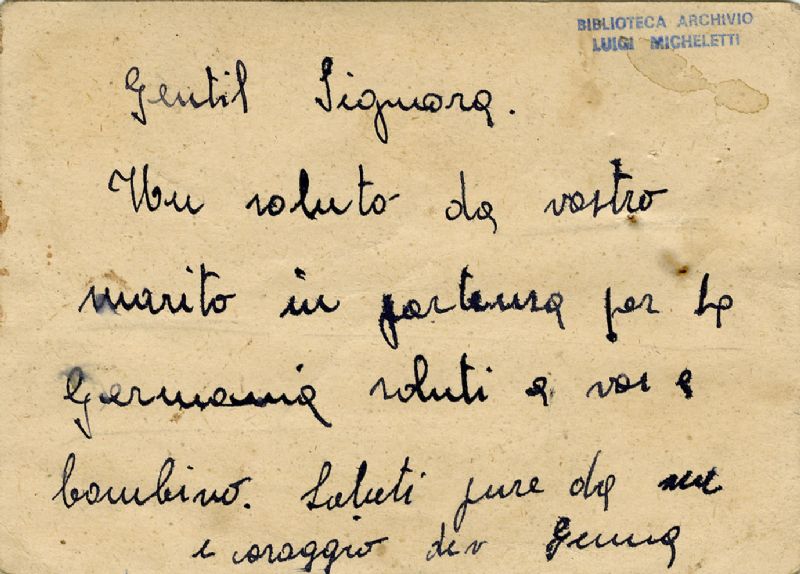 BIBLIOTECA ARCHIVIO
LUIGI MICHELETTI
Gentil Signora.
Un saluto da vostro
marito in partenza per la
Germania saluti a voi e
bambino. Saluti pure da me
e coraggio dev Gemma